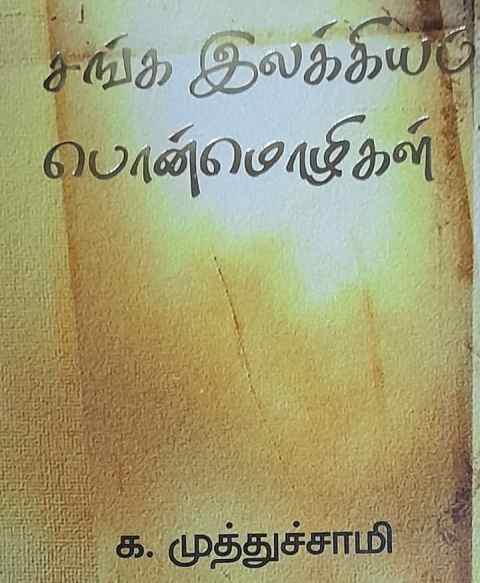 சங்க இலக்கியம்
பொன்மொழிகள்
க. முத்துச்சாமி